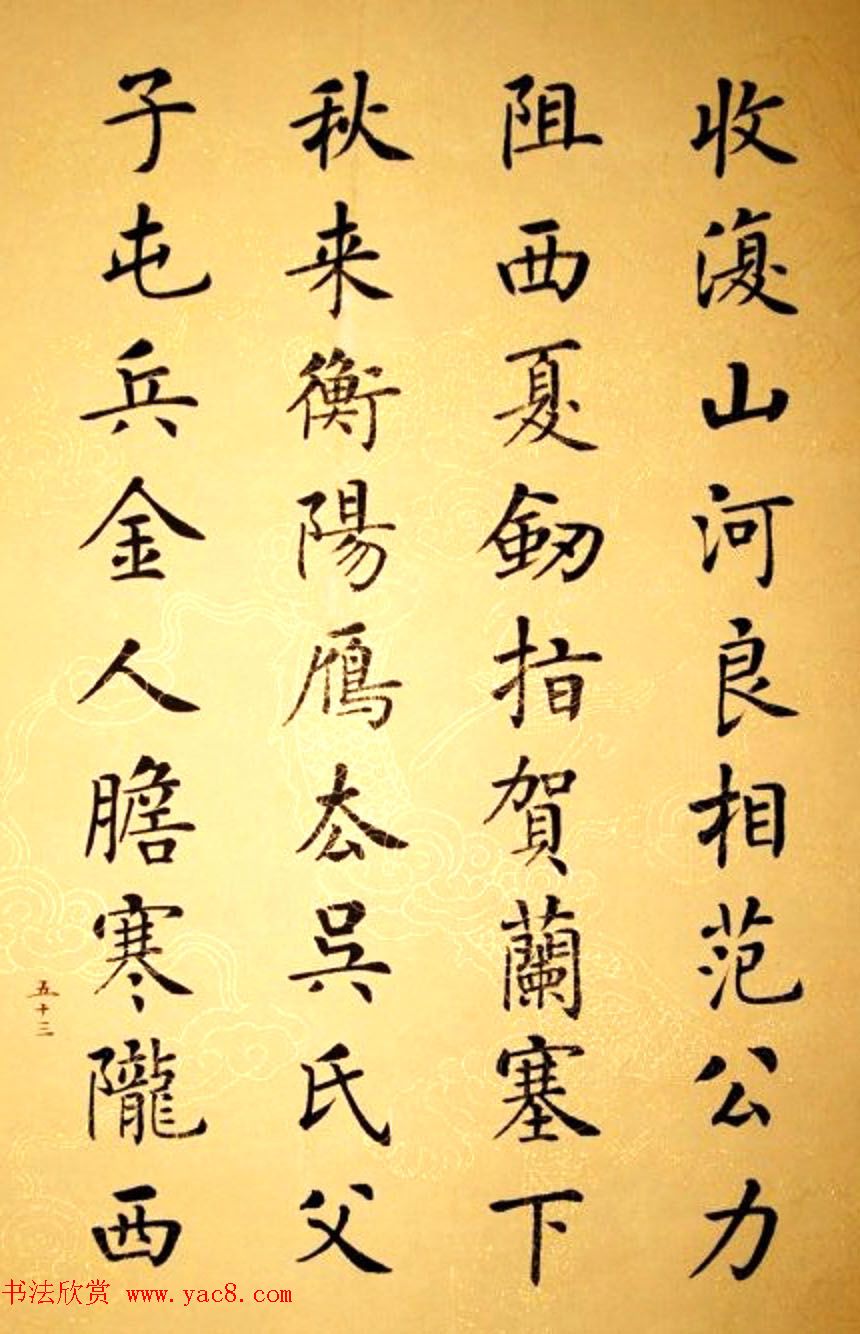 收復山河良相范公力
阻西夏劒指賀蘭塞下
秋来衡陽雁去吳氏父
子屯兵金人膽寒隴西
五十三
书法欣赏 www.yac8.com